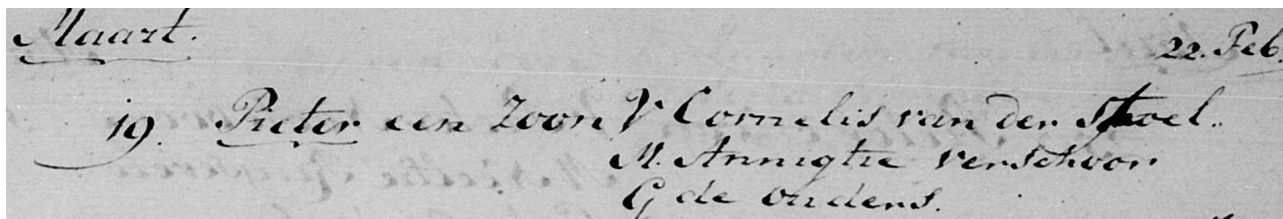 Maart.
22. Feb.
19. Pieter een Zoon V Cornelis van der Stoel..
M. Annigtie verschoor
G de ouders.